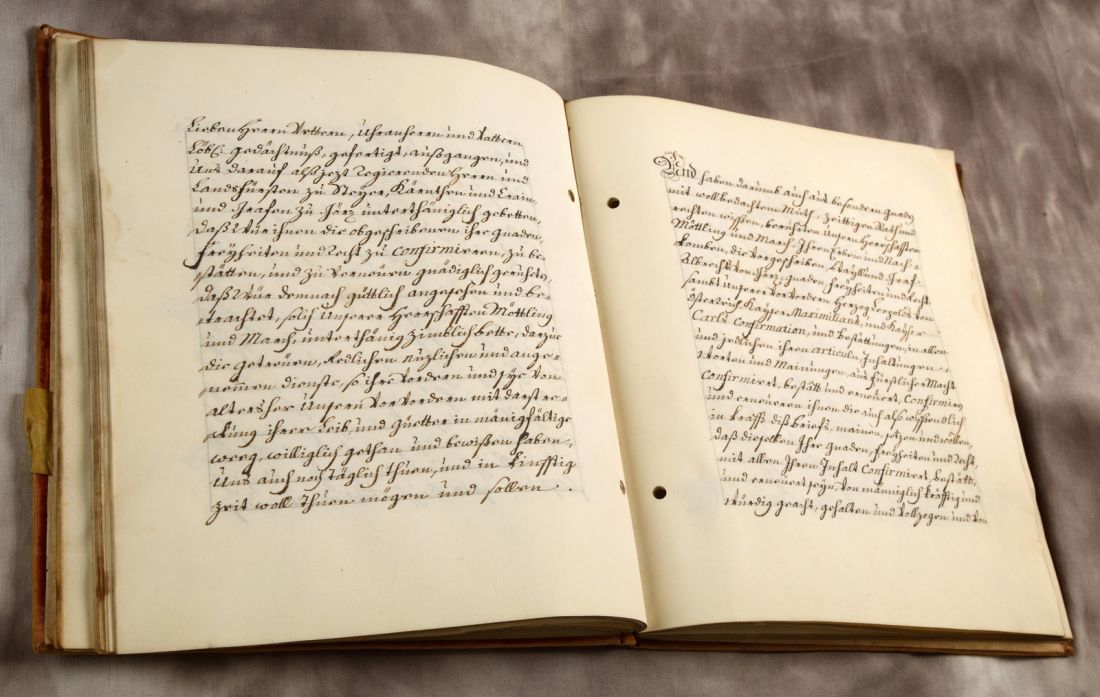 Lieben Herrn Vettern, Uhranherrn und Vattern
Löbl: gedächtnuß, gefertigt, außgangen, und
Uns darauf alß jezt Regierenden Herrn und
Landsfürsten zu Steyer, Kärnthen und Crain,
und Grafen zu Görz unterthäniglich gebetten,
daß Wür ihnen die obgeschribenen ihre gnaden,
freyheiten und Recht zu Confirmieren, zu be-
stätten, und zu Verneuen gnädiglich geruheten,
daß Wür demnach güttlich angesehen und be-
trachtet, solch Unserer Herrschafften Möttling
und March, unterthänig zimblich bette, darzue
die getreuen, Redlichen Nuzlichen und ange-
nemmen dienste, so ihre Vordern und sye Von
altersher Unsern Vorvordern mit darstre-
ckung ihrer Leib, und Guetter in mänigfältige
weeg, williglich gethan und bewißen haben,
Uns auch noch täglich thuen, und in Künfftig
zeit woll thuen mögen und sollen.
Und haben darumb auch auß besondern gnaden
mit wollbedachten Muth, zeittigen Rath und
rechten wissen, berührten Unsern Herrschafften
Möttling und March, Ihren Erben und Nach-
komben, die Vorgeschriben, Graf
Albrechts Von Görz, gnaden, freyheiten und Recht
sambt Unserer Vorvordern Herzog Leopolds Von
Österreich, Kayser Maximilians, und Kayser
Carls Confirmation, und bestättungen, in allen
und jedlichen ihren articuln, Inhaltungen
Worten und Mainungen, auß fürstlicher Macht
Confirmiert, bestätt und erneuert, Confirmiren
und erneueren ihnen die auch also wissendlich
in Krafft diß briefs, mainen, sezen und wollen,
daß dieselben Ihre gnaden, freyheiten und Recht,
mit allen Ihren Inhalt Confirmiert, bestätt,
und erneuert seyn, Von männiglich kräfftig und
würdig geacht, gehalten und Vollzogen und Von